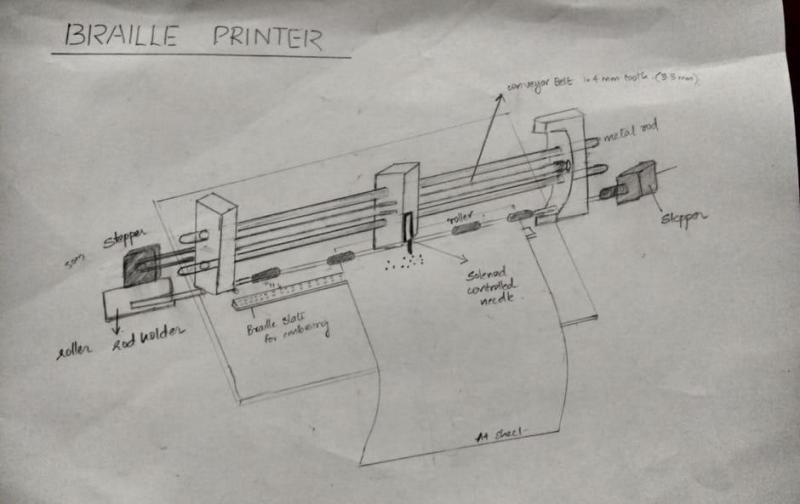 BRAILLE PRINTER
conveyor Belt in 4 mm tooth (3.3 mm)
metal rod
Stepper
Stepper
roller
Solenod
controlled
needle
Braille Slate
for embosing
roller Rod Holder
A4 Sheet